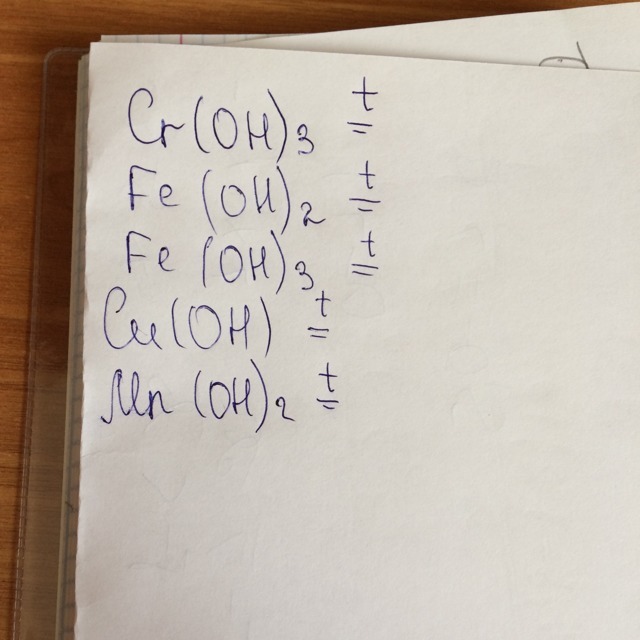 Cr(OH)₃ t=
Fe(OH)₂ t=
Fe(OH)₃ t=
Cu(OH) t=
Mn(OH)₂ t=